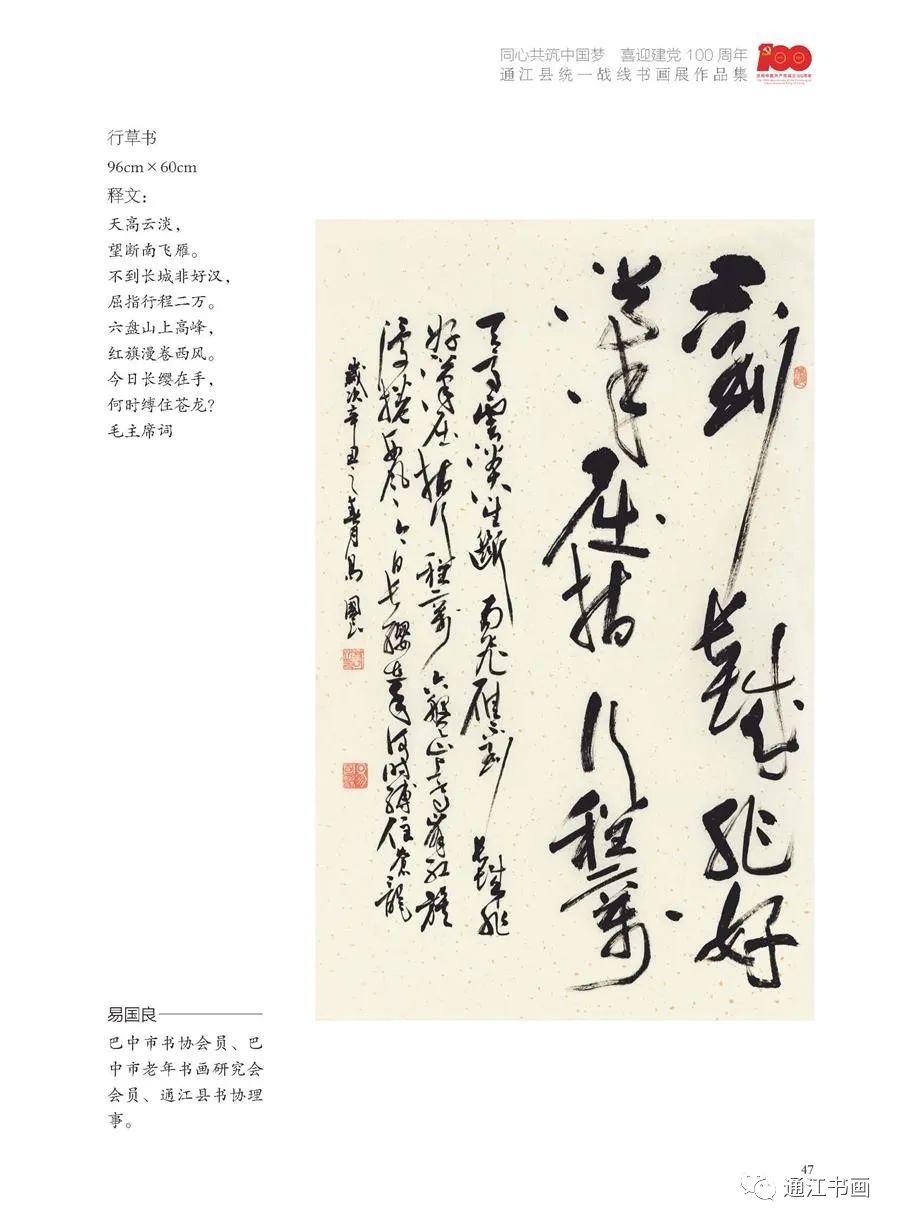 同心共筑中国梦 喜迎建党100周年
通江县统一战线书画展作品集
100
行草书
96cm×60cm
释文：
天高云淡，
望断南飞雁。
不到长城非好汉，
屈指行程二万。
六盘山上高峰，
红旗漫卷西风。
今日长缨在手，
何时缚住苍龙？
毛主席词
不到长城非好
汉屈指行程二万
天高云淡望断南飞雁不到长城非
好汉屈指行程二万六盘山上高峰红旗
漫捲西风今日长缨在手何时缚住苍龙
岁次辛丑之春月易国良
易国良
巴中市书协会员、巴
中市老年书画研究会
会员、通江县书协理
事。
47
通江书画